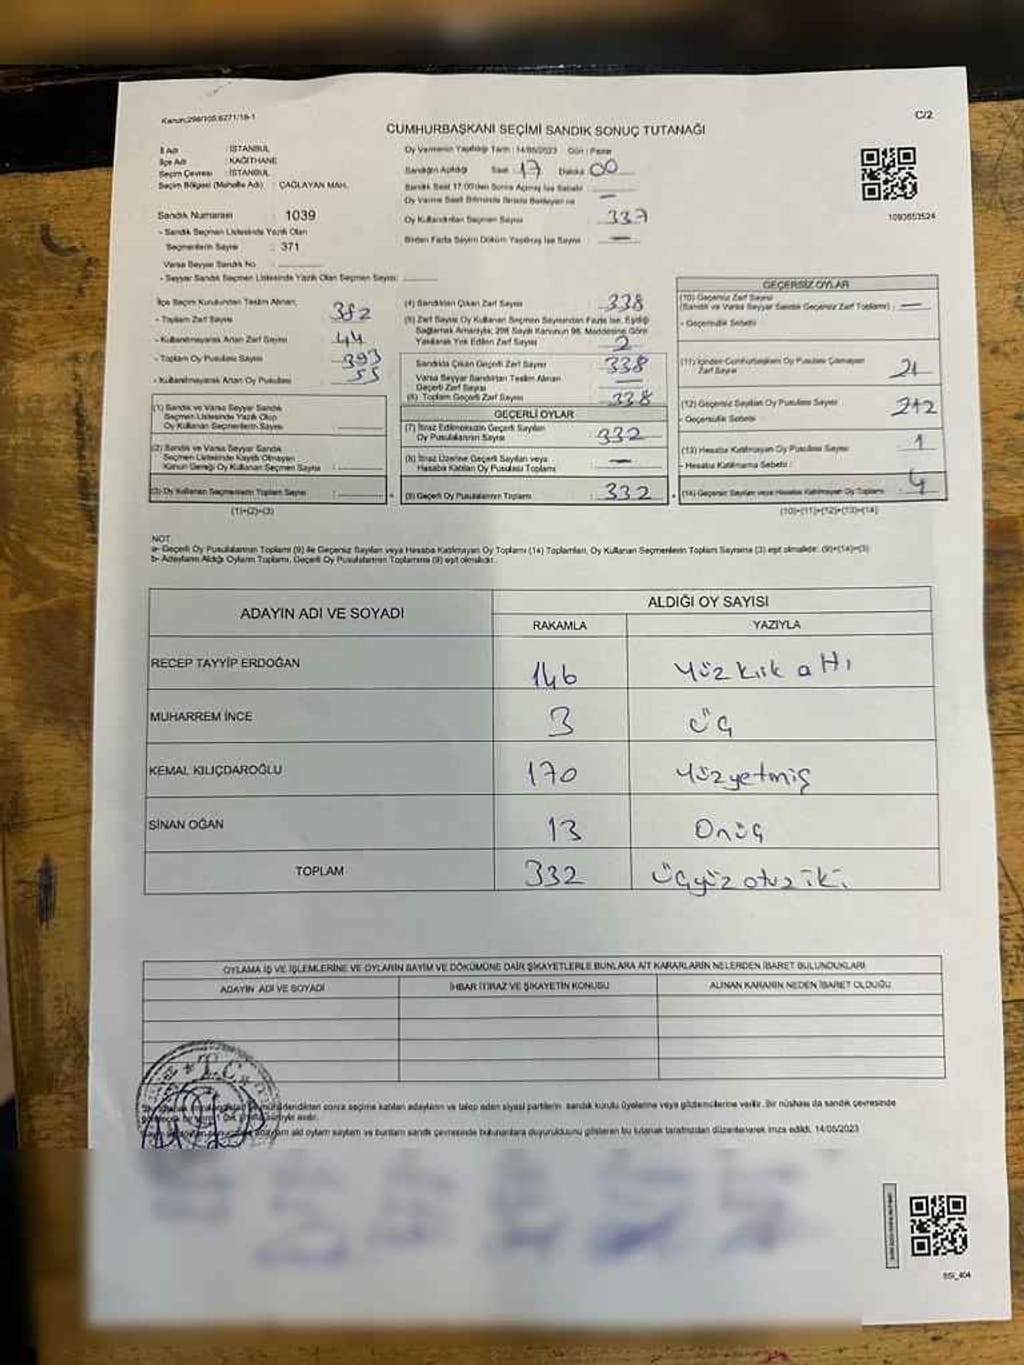 Kanun:298/105.6271/18-1
C/2
CUMHURBAŞKANI SEÇİMİ SANDIK SONUÇ TUTANAĞI
İl Adı : İSTANBUL
İlçe Adı : KAĞITHANE
Seçim Çevresi : İSTANBUL
Seçim Bölgesi (Mahalle Adı) : ÇAĞLAYAN MAH.
Oy Vermenin Yapıldığı Tarih : 14/05/2023 Gün : Pazar
Sandığın Açıldığı Saat : 17 Dakika 00
Sandık Saat 17.00'den Sonra Açılmış İse Sebebi
Oy Verme Saati Bitiminde Sırada Bekleyen ve
Oy Kullandırılan Seçmen Sayısı 337
Birden Fazla Sayım Döküm Yapılmış İse Sayısı : —
1093653524
Sandık Numarası 1039
- Sandık Seçmen Listesinde Yazılı Olan
Seçmenlerin Sayısı : 371
Varsa Seyyar Sandık No
- Seyyar Sandık Seçmen Listesinde Yazılı Olan Seçmen Sayısı:
İlçe Seçim Kurulundan Teslim Alınan;
- Toplam Zarf Sayısı 382
- Kullanılmayarak Artan Zarf Sayısı 44
- Toplam Oy Pusulası Sayısı 393
- Kullanılmayarak Artan Oy Pusulası 55
(1) Sandık ve Varsa Seyyar Sandık
Seçmen Listesinde Yazılı Olup
Oy Kullanan Seçmenlerin Sayısı
(2) Sandık ve Varsa Seyyar Sandık
Seçmen Listesinde Kayıtlı Olmayan
Kanun Gereği Oy Kullanan Seçmen Sayısı
(3) Oy Kullanan Seçmenlerin Toplam Sayısı
(1)+(2)=(3)
(4) Sandıktan Çıkan Zarf Sayısı 338
(5) Zarf Sayısı Oy Kullanan Seçmen Sayısından Fazla İse, Eşitliği
Sağlamak Amacıyla; 298 Sayılı Kanunun 98. Maddesine Göre
Yakılarak Yok Edilen Zarf Sayısı 2
Sandıkta Çıkan Geçerli Zarf Sayısı 338
Varsa Seyyar Sandıktan Teslim Alınan
Geçerli Zarf Sayısı —
(6) Toplam Geçerli Zarf Sayısı 338
GEÇERLİ OYLAR
(7) İtiraz Edilmeksizin Geçerli Sayılan
Oy Pusulalarının Sayısı 332
(8) İtiraz Üzerine Geçerli Sayılan veya
Hesaba Katılan Oy Pusulası Toplamı —
(9) Geçerli Oy Pusulalarının Toplamı : 332
GEÇERSİZ OYLAR
(10) Geçersiz Zarf Sayısı
(Sandık ve Varsa Seyyar Sandık Geçersiz Zarf Toplamı) : —
- Geçersizlik Sebebi
(11) İçinden Cumhurbaşkanı Oy Pusulası Çıkmayan
Zarf Sayısı
(12) Geçersiz Sayılan Oy Pusulası Sayısı
- Geçersizlik Sebebi
(13) Hesaba Katılmayan Oy Pusulası Sayısı 1
- Hesaba Katılmama Sebebi :
(14) Geçersiz Sayılan veya Hesaba Katılmayan Oy Toplamı : 4
(10)+(11)+(12)+(13)=(14)
NOT
a- Geçerli Oy Pusulalarının Toplamı (9) ile Geçersiz Sayılan veya Hesaba Katılmayan Oy Toplamı (14) Toplamları, Oy Kullanan Seçmenlerin Toplam Sayısına (3) eşit olmalıdır. (9)+(14)=(3)
b- Adayların Aldığı Oyların Toplamı, Geçerli Oy Pusulalarının Toplamına (9) eşit olmalıdır.
ADAYIN ADI VE SOYADI
ALDIĞI OY SAYISI
RAKAMLA YAZIYLA
RECEP TAYYİP ERDOĞAN 146 Yüz kırk altı
MUHARREM İNCE 3 üç
KEMAL KILIÇDAROĞLU 170 Yüzyetmiş
SİNAN OĞAN 13 Onüç
TOPLAM 332 üçyüz otuz iki
OYLAMA İŞ VE İŞLEMLERİNE VE OYLARIN SAYIM VE DÖKÜMÜNE DAİR ŞİKAYETLERLE BUNLARA AİT KARARLARIN NELERDEN İBARET BULUNDUKLARI
ADAYIN ADI VE SOYADI İHBAR İTİRAZ VE ŞİKAYETİN KONUSU ALINAN KARARIN NEDEN İBARET OLDUĞU
T.C.
mühürlendikten sonra seçime katılan adayların ve talep eden siyasi partilerin sandık kurulu üyelerine veya gözlemcilerine verilir. Bir nüshası da sandık çevresinde
süreyle asılır.
oyların sayılarını ve bunların sandık çevresinde bulunanlara duyurulduğunu gösteren bu tutanak tarafımızdan düzenlenerek imza edildi. 14/05/2023
SSİ_404